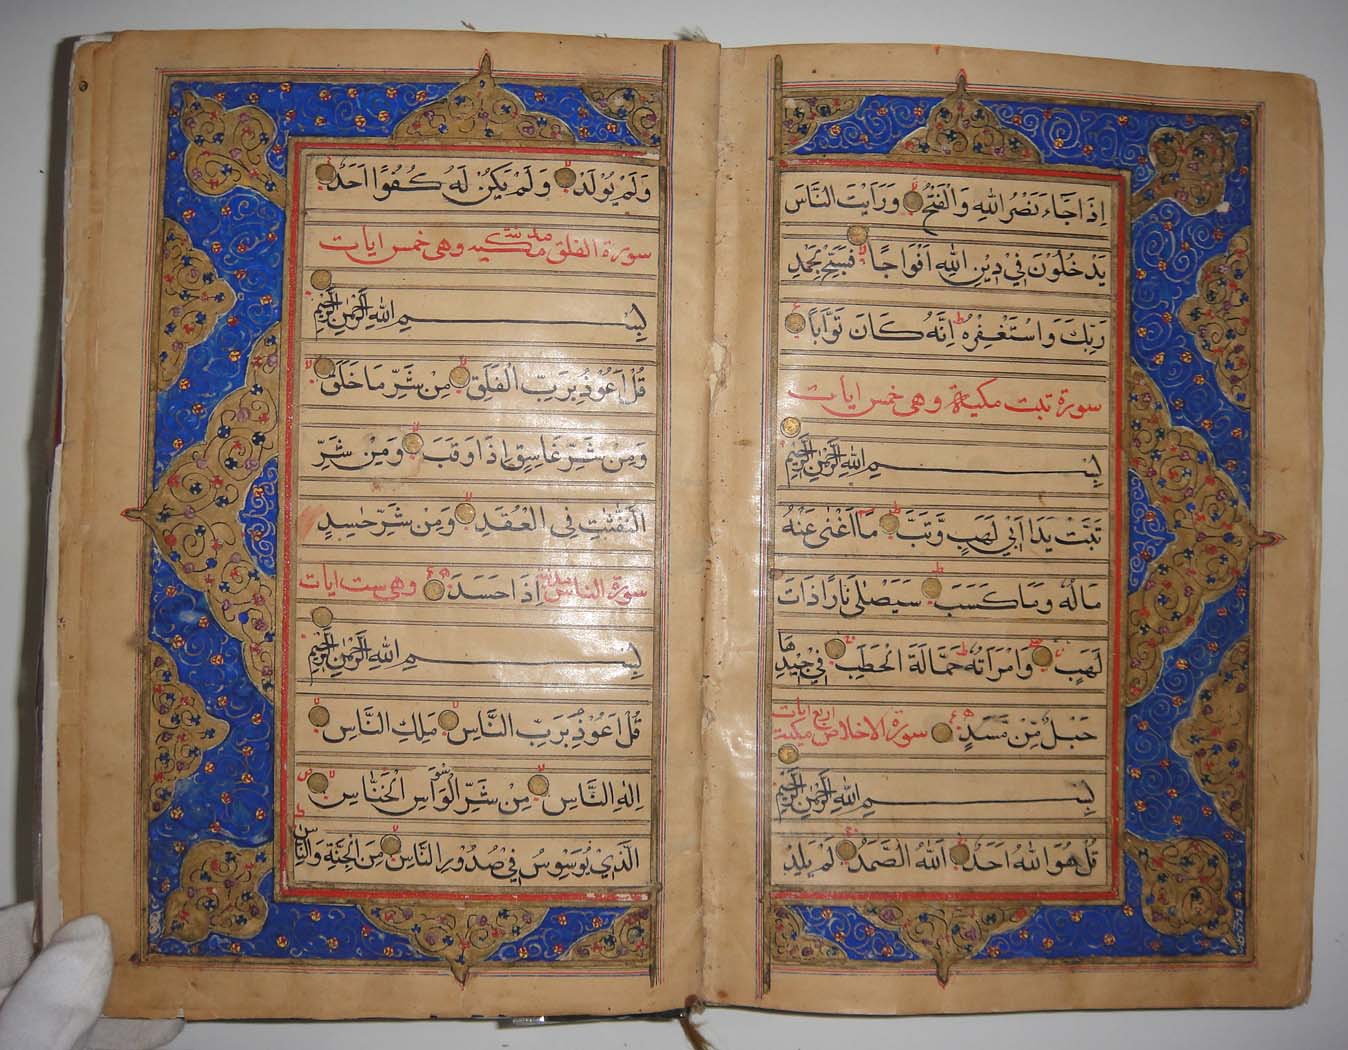 اِذَا جَاءَ نَصْرُ اللّٰهِ وَالْفَتْحُ وَرَاَيْتَ النَّاسَ
يَدْخُلُوْنَ فِيْ دِيْنِ اللّٰهِ اَفْوَاجًا فَسَبِّحْ بِحَمْدِ
رَبِّكَ وَاسْتَغْفِرْهُ اِنَّهُ كَانَ تَوَّابًا
سورة تبت مكية وهى خمس ايات
بِسْمِ اللّٰهِ الرَّحْمٰنِ الرَّحِيْمِ
تَبَّتْ يَدَا اَبِيْ لَهَبٍ وَّتَبَّ مَا اَغْنٰى عَنْهُ
مَالُهُ وَمَا كَسَبَ سَيَصْلٰى نَارًا ذَاتَ
لَهَبٍ وَامْرَاَتُهُ حَمَّالَةَ الْحَطَبِ فِيْ جِيْدِهَا
حَبْلٌ مِّنْ مَّسَدٍ سورة الاخلاص مكيت اربع ايات
بِسْمِ اللّٰهِ الرَّحْمٰنِ الرَّحِيْمِ
قُلْ هُوَ اللّٰهُ اَحَدٌ اَللّٰهُ الصَّمَدُ لَمْ يَلِدْ
وَلَمْ يُوْلَدْ وَلَمْ يَكُنْ لَهُ كُفُوًا اَحَدٌ
سورة الفلق مكيه وهى خمس ايات
بِسْمِ اللّٰهِ الرَّحْمٰنِ الرَّحِيْمِ
قُلْ اَعُوْذُ بِرَبِّ الْفَلَقِ مِنْ شَرِّ مَا خَلَقَ
وَمِنْ شَرِّ غَاسِقٍ اِذَا وَقَبَ وَمِنْ شَرِّ
النَّفّٰثٰتِ فِى الْعُقَدِ وَمِنْ شَرِّ حٰسِدٍ
اِذَا حَسَدَ سورة الناس وهى ست ايات
بِسْمِ اللّٰهِ الرَّحْمٰنِ الرَّحِيْمِ
قُلْ اَعُوْذُ بِرَبِّ النَّاسِ مَلِكِ النَّاسِ
اِلٰهِ النَّاسِ مِنْ شَرِّ الْوَسْوَاسِ الْخَنَّاسِ
الَّذِيْ يُوَسْوِسُ فِيْ صُدُوْرِ النَّاسِ مِنَ الْجِنَّةِ وَالنَّاسِ